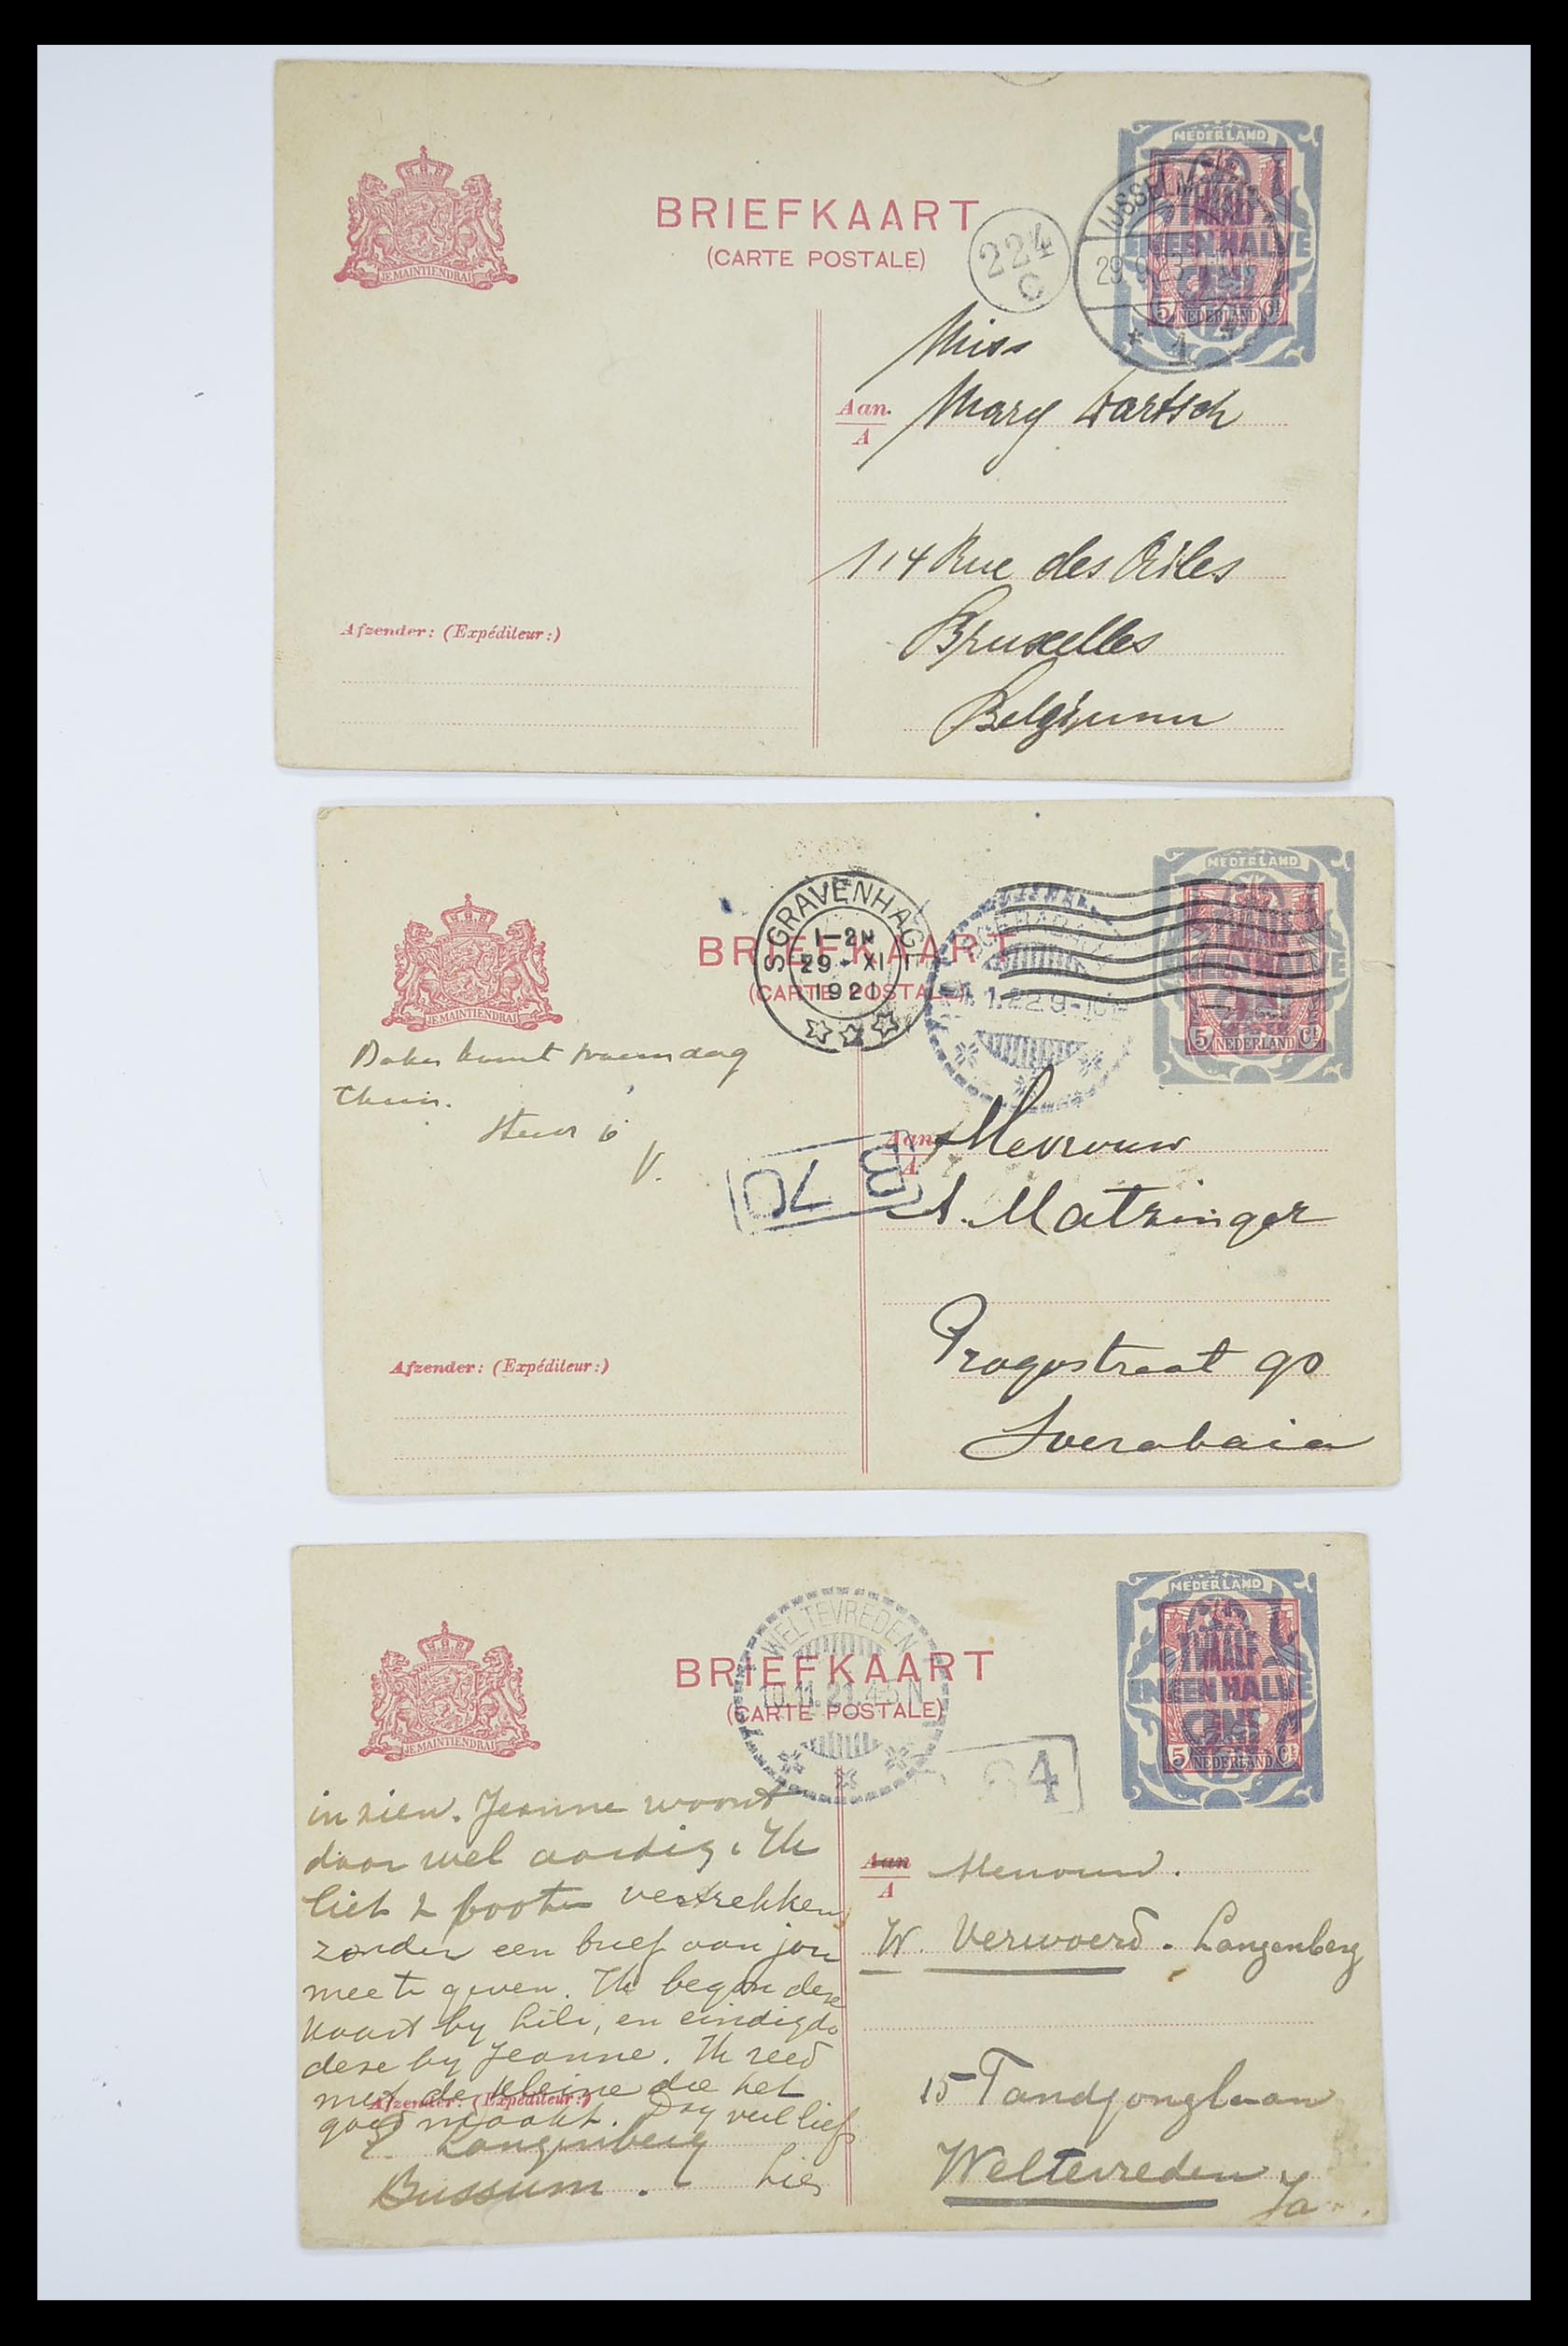 NEDERLAND
BRIEFKAART
(CARTE POSTALE)
JE MAINTIENDRAI
224
C
IJSSELM
29 9
TWAALF
EN EEN HALVE
CENT
5 NEDERLAND Ct
1
Miss
Aan
A
Mary
114 Rue des
Bruxelles
Belgium
Afzender: (Expéditeur:)
NEDERLAND
'S GRAVENHAGE
1-2N
29 XI
1921
BRIEFKAART
(CARTE POSTALE)
JE MAINTIENDRAI
1.22.9-10
TWAALF
EN EEN HALVE
CENT
5 NEDERLAND Ct
komt
V.
B 70
Aan
A
Mevrouw
A. Matzinger
Progostraat 90
Soerabaia
Afzender: (Expéditeur:)
NEDERLAND
WELTEVREDEN
BRIEFKAART
10.11.21.4-5 N
(CARTE POSTALE)
JE MAINTIENDRAI
TWAALF
EN EEN HALVE
CENT
5 NEDERLAND Ct
4
in zien. Jeanne woont
daar wel aardig. Ik
liet 2 booten vertrekken
zonder een brief aan jou
mee te geven. Ik begon deze
kaart by Lili, en eindigde
deze by Jeanne. Ik reed
met de kleine die het
goed maakt. Dag veel liefs
Afzender: (Expéditeur:)
Langenberg
Bussum.
Aan
A
Mevrouw.
W. Verwoerd. Langenberg
15 Tandjonglaan
Weltevreden